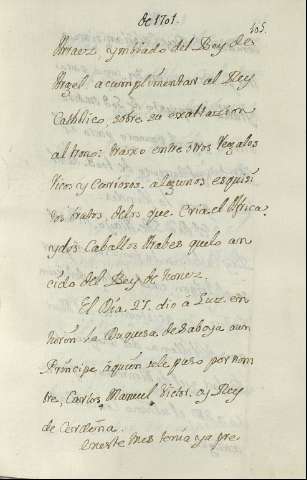 de 1701.
405.
Arraez, ymbiado del Rey de
Argel, a cumplimentar al Rey
Catholico, sobre su exaltacion
al trono: traxo entre otros Regalos
ricos y curiosos, algunos esquisi
tos brutos, delos que Cria el Africa,
y dos Caballos Arabes que lo an
sido del Rey de
El Dia 27. dio â Luz en
la Duquesa de Saboya a un
Principe â quien sele puso por nom
bre, Carlos Manuel Victor. oy Rey
de Cerdeña.
En este mes tenia ya pre